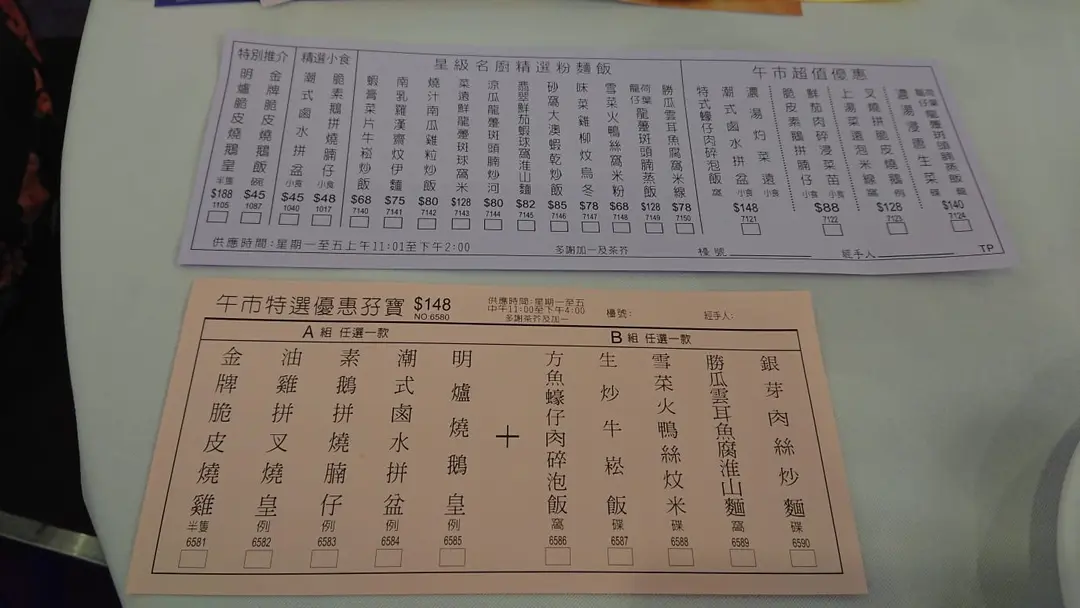 特別推介
明爐脆皮燒鵝皇 半隻 $188 1105
金牌脆皮燒鵝飯 碗 $45 1087
精選小食
潮式鹵水拼盆 小食 $45 1040
脆素鵝拼燒腩仔 小食 $48 1017
星級名廚精選粉麵飯
蝦膏菜片牛崧炒飯 $68 7140
南乳羅漢齋炆伊麵 $75 7141
燒汁南瓜雞粒炒飯 $80 7142
菜遠鮮龍躉斑球窩米 $128 7143
涼瓜龍躉斑頭腩炒河 $80 7144
翡翠鮮茄蝦球窩淮山麵 $82 7145
砂窩大澳蝦乾炒飯 $85 7146
味菜雞柳炆烏冬 $78 7147
雪菜火鴨絲窩米粉 $68 7148
籠仔荷葉龍躉斑頭腩蒸飯 $128 7149
勝瓜雲耳魚腐窩米線 $78 7150
午市超值優惠
特式蠔仔肉碎泡飯 窩
潮式鹵水拼盆 小食
濃湯灼菜遠 小食
$148 7121
脆皮素鵝拼腩仔 小食
鮮茄肉碎浸菜苗 小食
$88 7122
上湯菜遠泡米線 窩
叉燒拼脆皮燒鵝 例
$128 7123
濃湯浸唐生菜 碟
籠仔荷葉龍躉斑頭腩蒸飯
$140 7124
供應時間:星期一至五上午11:01至下午2:00
多謝加一及茶芥
檯號
經手人
TP
午市特選優惠孖寶 $148
NO.6580
供應時間:星期一至五
中午11:00至下午4:00
多謝茶芥及加一
檯號:
經手人:
A 組 任選一款
金牌脆皮燒雞 半隻 6581
油雞拼叉燒皇 例 6582
素鵝拼燒腩仔 例 6583
潮式鹵水拼盆 例 6584
明爐燒鵝皇 例 6585
+
B 組 任選一款
方魚蠔仔肉碎泡飯 窩 6586
生炒牛崧飯 碟 6587
雪菜火鴨絲炆米 碟 6588
勝瓜雲耳魚腐淮山麵 窩 6589
銀芽肉絲炒麵 碟 6590